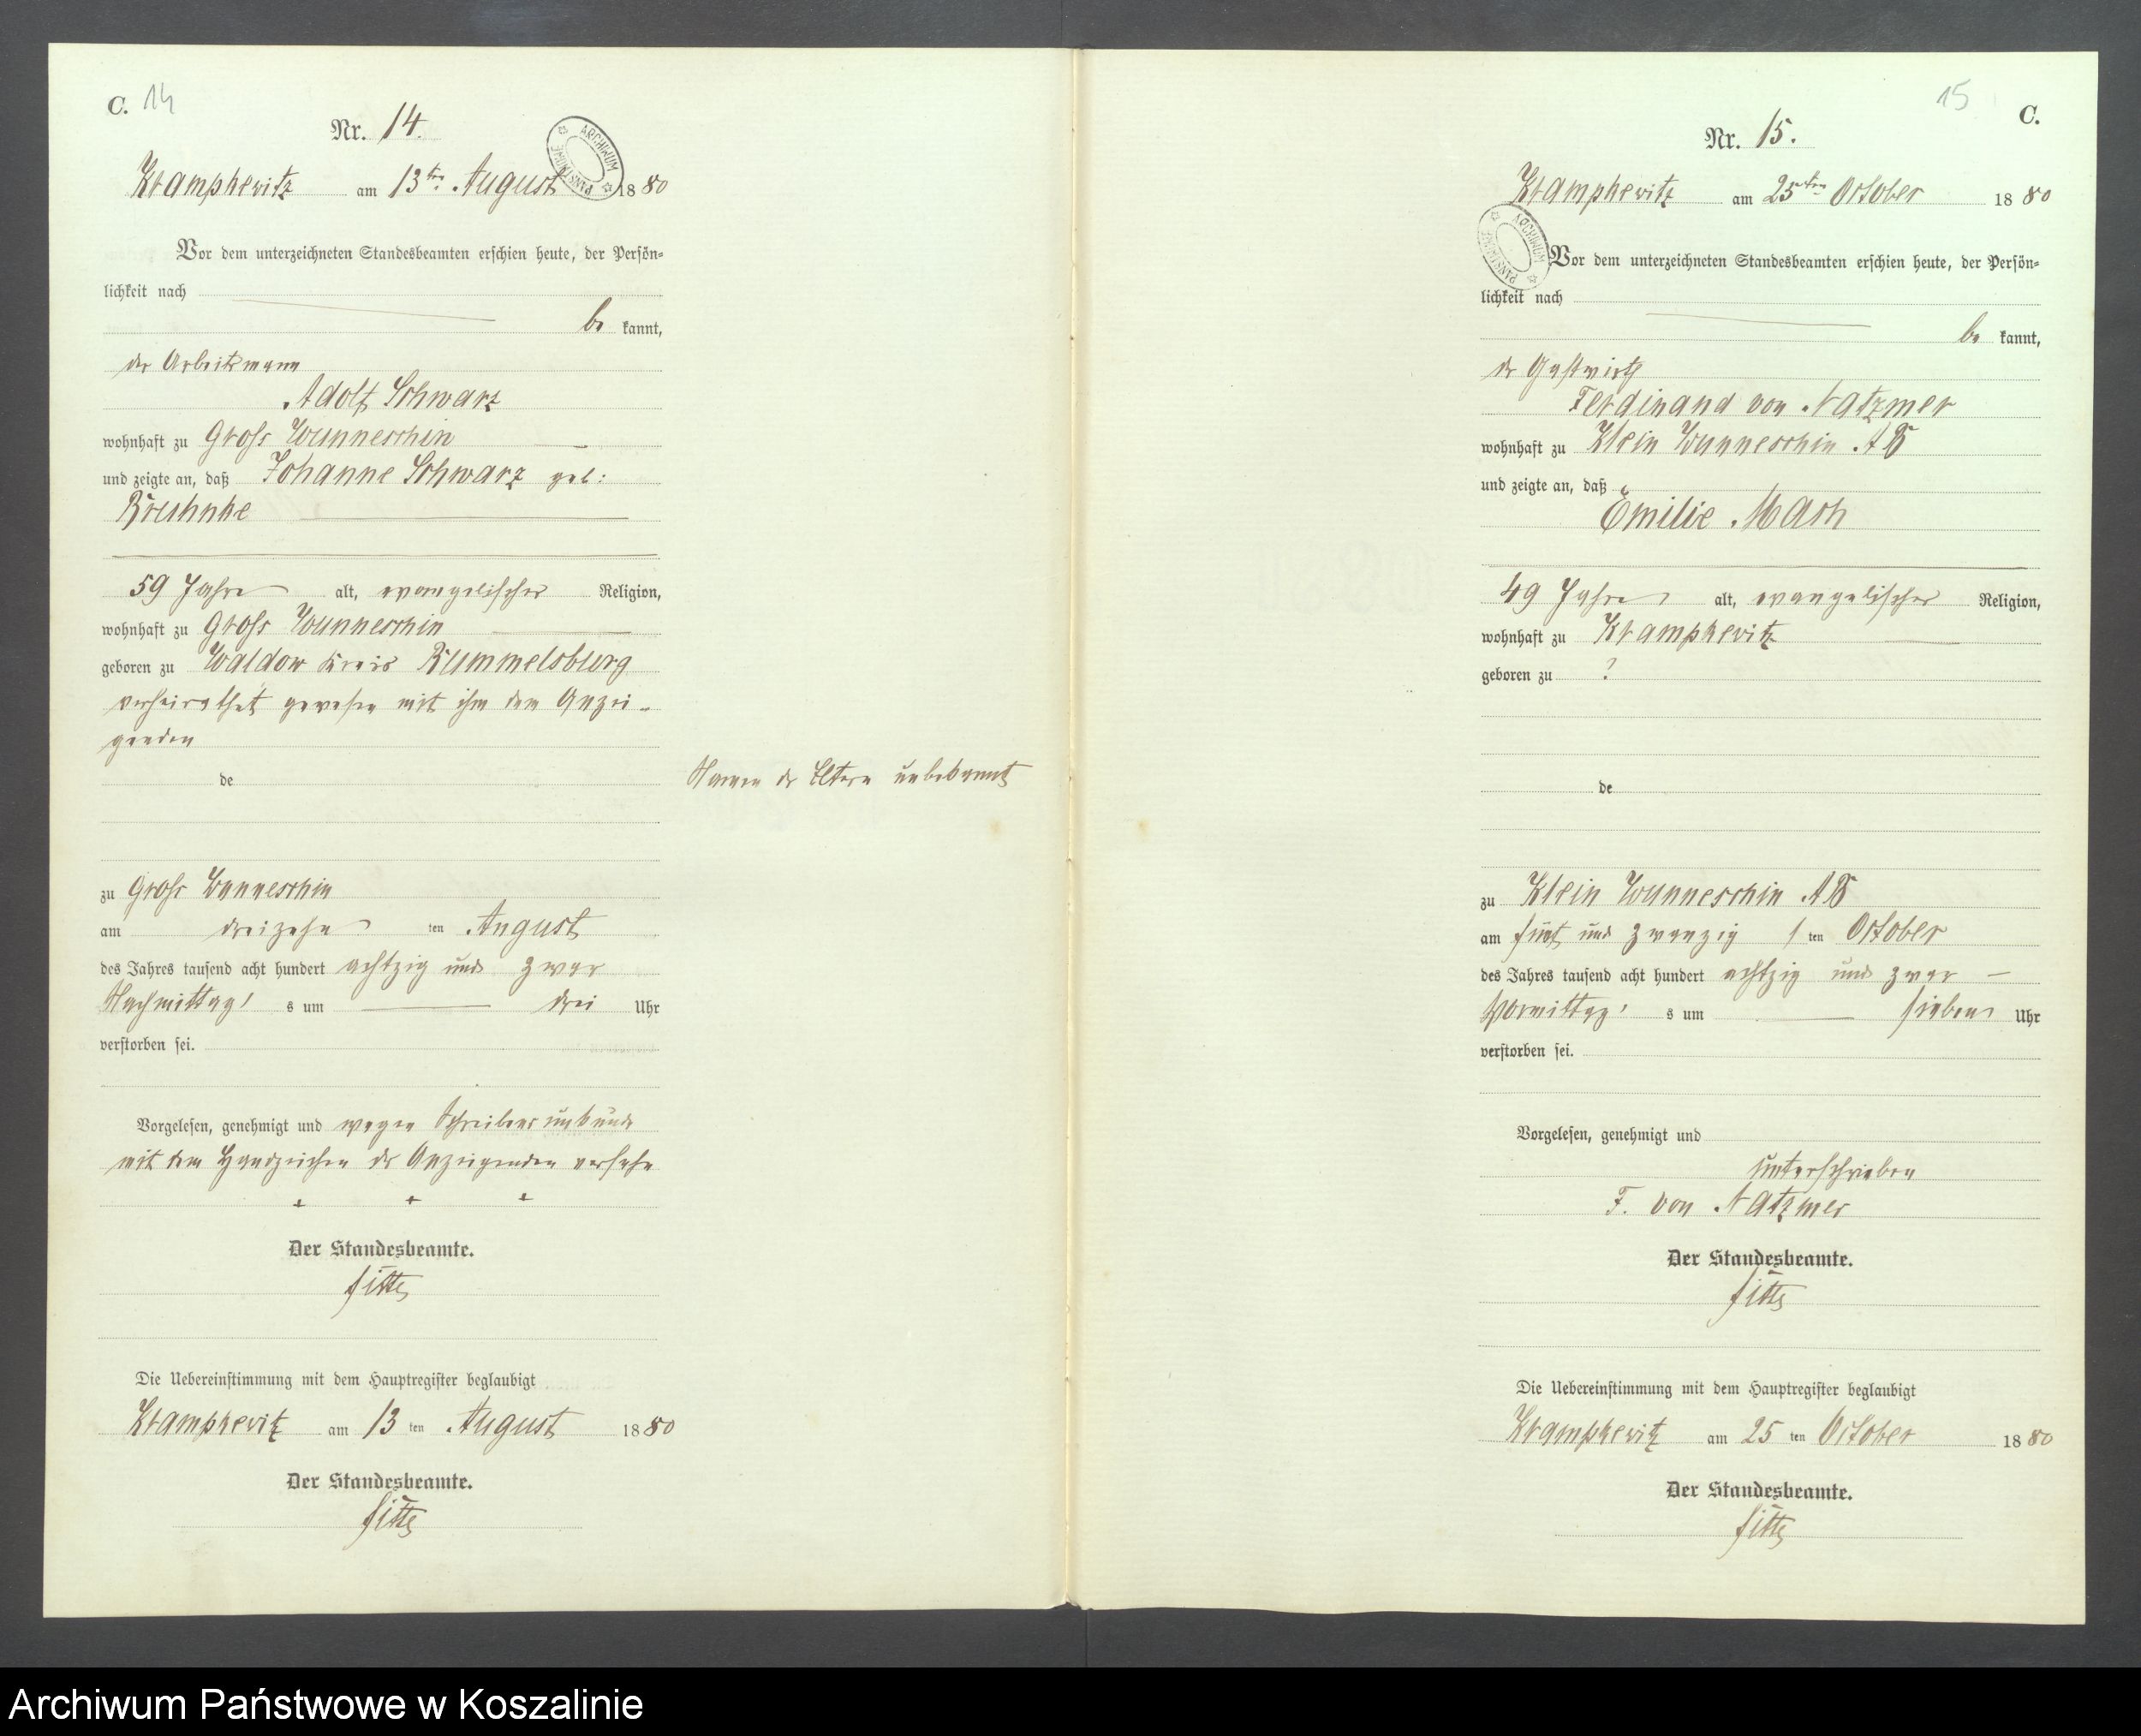 C. 14
Nr. 14.
ARCHIWUM PAŃSTWOWE
Krampkewitz am 13ten August 1880
Vor dem unterzeichneten Standesbeamten erschien heute, der Persön-
lichkeit nach
be kannt,
der Arbeitsmann
Adolf Schwarz
wohnhaft zu Gross Wunneschin
und zeigte an, daß Johanne Schwarz geb:
59 Jahre alt, evangelischer Religion,
wohnhaft zu Gross Wunneschin
geboren zu Waldow Kreis Rummelsburg
verheirathet gewesen mit ihm dem Anzei-
genden
de
Namen der Eltern unbekannt
zu Gross Wunneschin
am dreizehn ten August
des Jahres tausend acht hundert achtzig und zwar
Nachmittag s um drei Uhr
verstorben sei.
Vorgelesen, genehmigt und wegen Schreibensunkunde
mit dem Handzeichen des Anzeigenden versehn
+ + +
Der Standesbeamte.
Die Uebereinstimmung mit dem Hauptregister beglaubigt
Krampkewitz am 13 ten August 1880
Der Standesbeamte.
15 C.
Nr. 15.
Krampkewitz am 25ten October 1880
ARCHIWUM PAŃSTWOWE
Vor dem unterzeichneten Standesbeamten erschien heute, der Persön-
lichkeit nach
be kannt,
der Gastwirth
Ferdinand von Natzmer
wohnhaft zu Klein Wunneschin AB
und zeigte an, daß
Emilie Mach
49 Jahre alt, evangelischer Religion,
wohnhaft zu Krampkewitz
geboren zu ?
de
zu Klein Wunneschin AB
am fünf und zwanzig ten October
des Jahres tausend acht hundert achtzig und zwar —
Vormittag s um sieben Uhr
verstorben sei.
Vorgelesen, genehmigt und
unterschrieben
F. von Natzmer
Der Standesbeamte.
Die Uebereinstimmung mit dem Hauptregister beglaubigt
Krampkewitz am 25 ten October 1880
Der Standesbeamte.
Archiwum Państwowe w Koszalinie